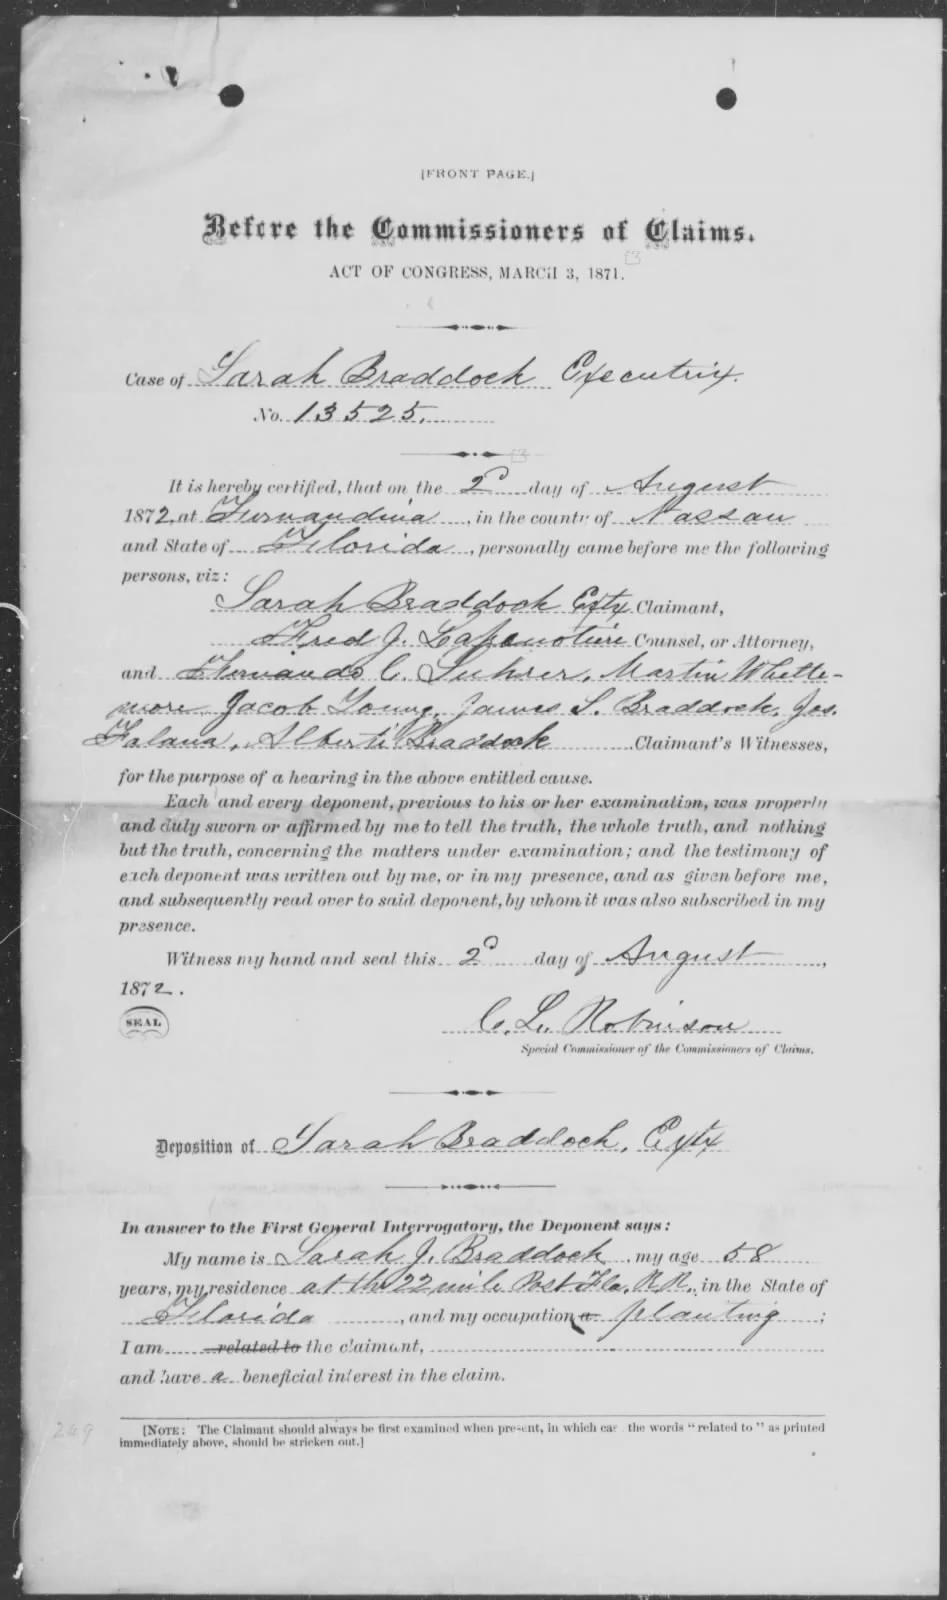 [FRONT PAGE.]
Before the Commissioners of Claims.
ACT OF CONGRESS, MARCH 3, 1871.
Case of Sarah Braddock Executrix.
No. 13525.
It is hereby certified, that on the 2d day of August
1872, at Fernandina, in the county of Nassau
and State of Florida, personally came before me the following
persons, viz:
Sarah Braddock Extx Claimant,
Fred J. Lapenotiere Counsel, or Attorney,
and Fernando C. Suhrer, Martin Whitte-
more Jacob Young, James S. Braddock, Jos.
Falana, Alberti Braddock Claimant's Witnesses,
for the purpose of a hearing in the above entitled cause.
Each and every deponent, previous to his or her examination, was properly
and duly sworn or affirmed by me to tell the truth, the whole truth, and nothing
but the truth, concerning the matters under examination; and the testimony of
each deponent was written out by me, or in my presence, and as given before me,
and subsequently read over to said deponent, by whom it was also subscribed in my
presence.
Witness my hand and seal this 2d day of August,
1872.
SEAL
C. L. Robinson
Special Commissioner of the Commissioners of Claims.
Deposition of Sarah Braddock, Extx
In answer to the First General Interrogatory, the Deponent says:
My name is Sarah J. Braddock, my age 58
years, my residence at the 22 mile Post Fla. R.R., in the State of
Florida, and my occupation a planting;
I am related to the claimant,
and have a beneficial interest in the claim.
249
[NOTE: The Claimant should always be first examined when present, in which cas the words "related to" as printed
immediately above, should be stricken out.]